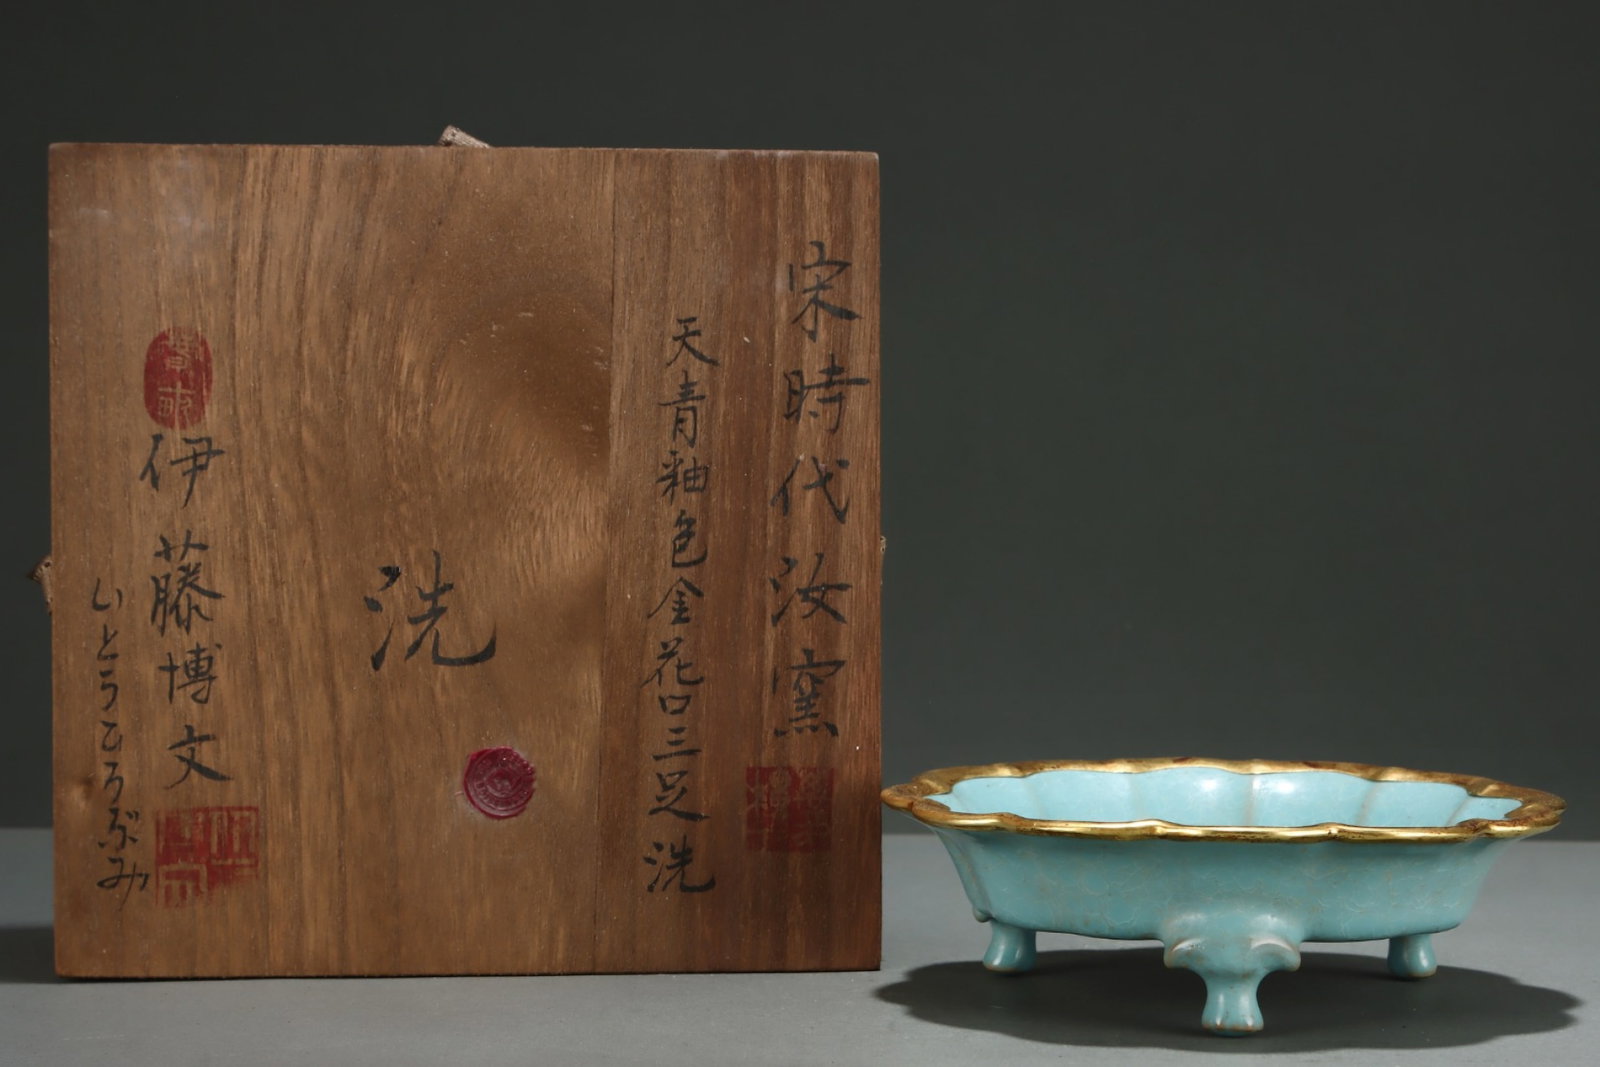 宋時代汝窯
天青釉色金花口三足洗
洗
伊藤博文
いとうひろぶみ